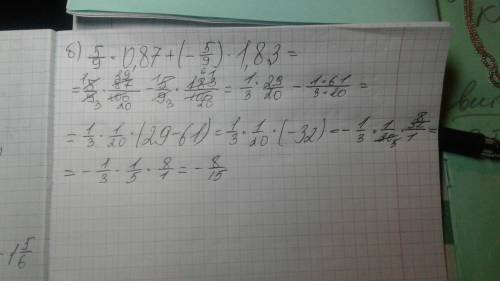 б) 5/9 · 0,87 + (- 5/9) · 1,83 =
= 5/9 · 87/100 - 5/9 · 183/100 = 1/3 · 29/20 - 1·61/3·20 =
= 1/3 · 1/20 · (29-61) = 1/3 · 1/20 · (-32) = - 1/3 · 1/20 · 32/1 =
= - 1/3 - 1/5 · 8/1 = - 8/15
-1 5/6